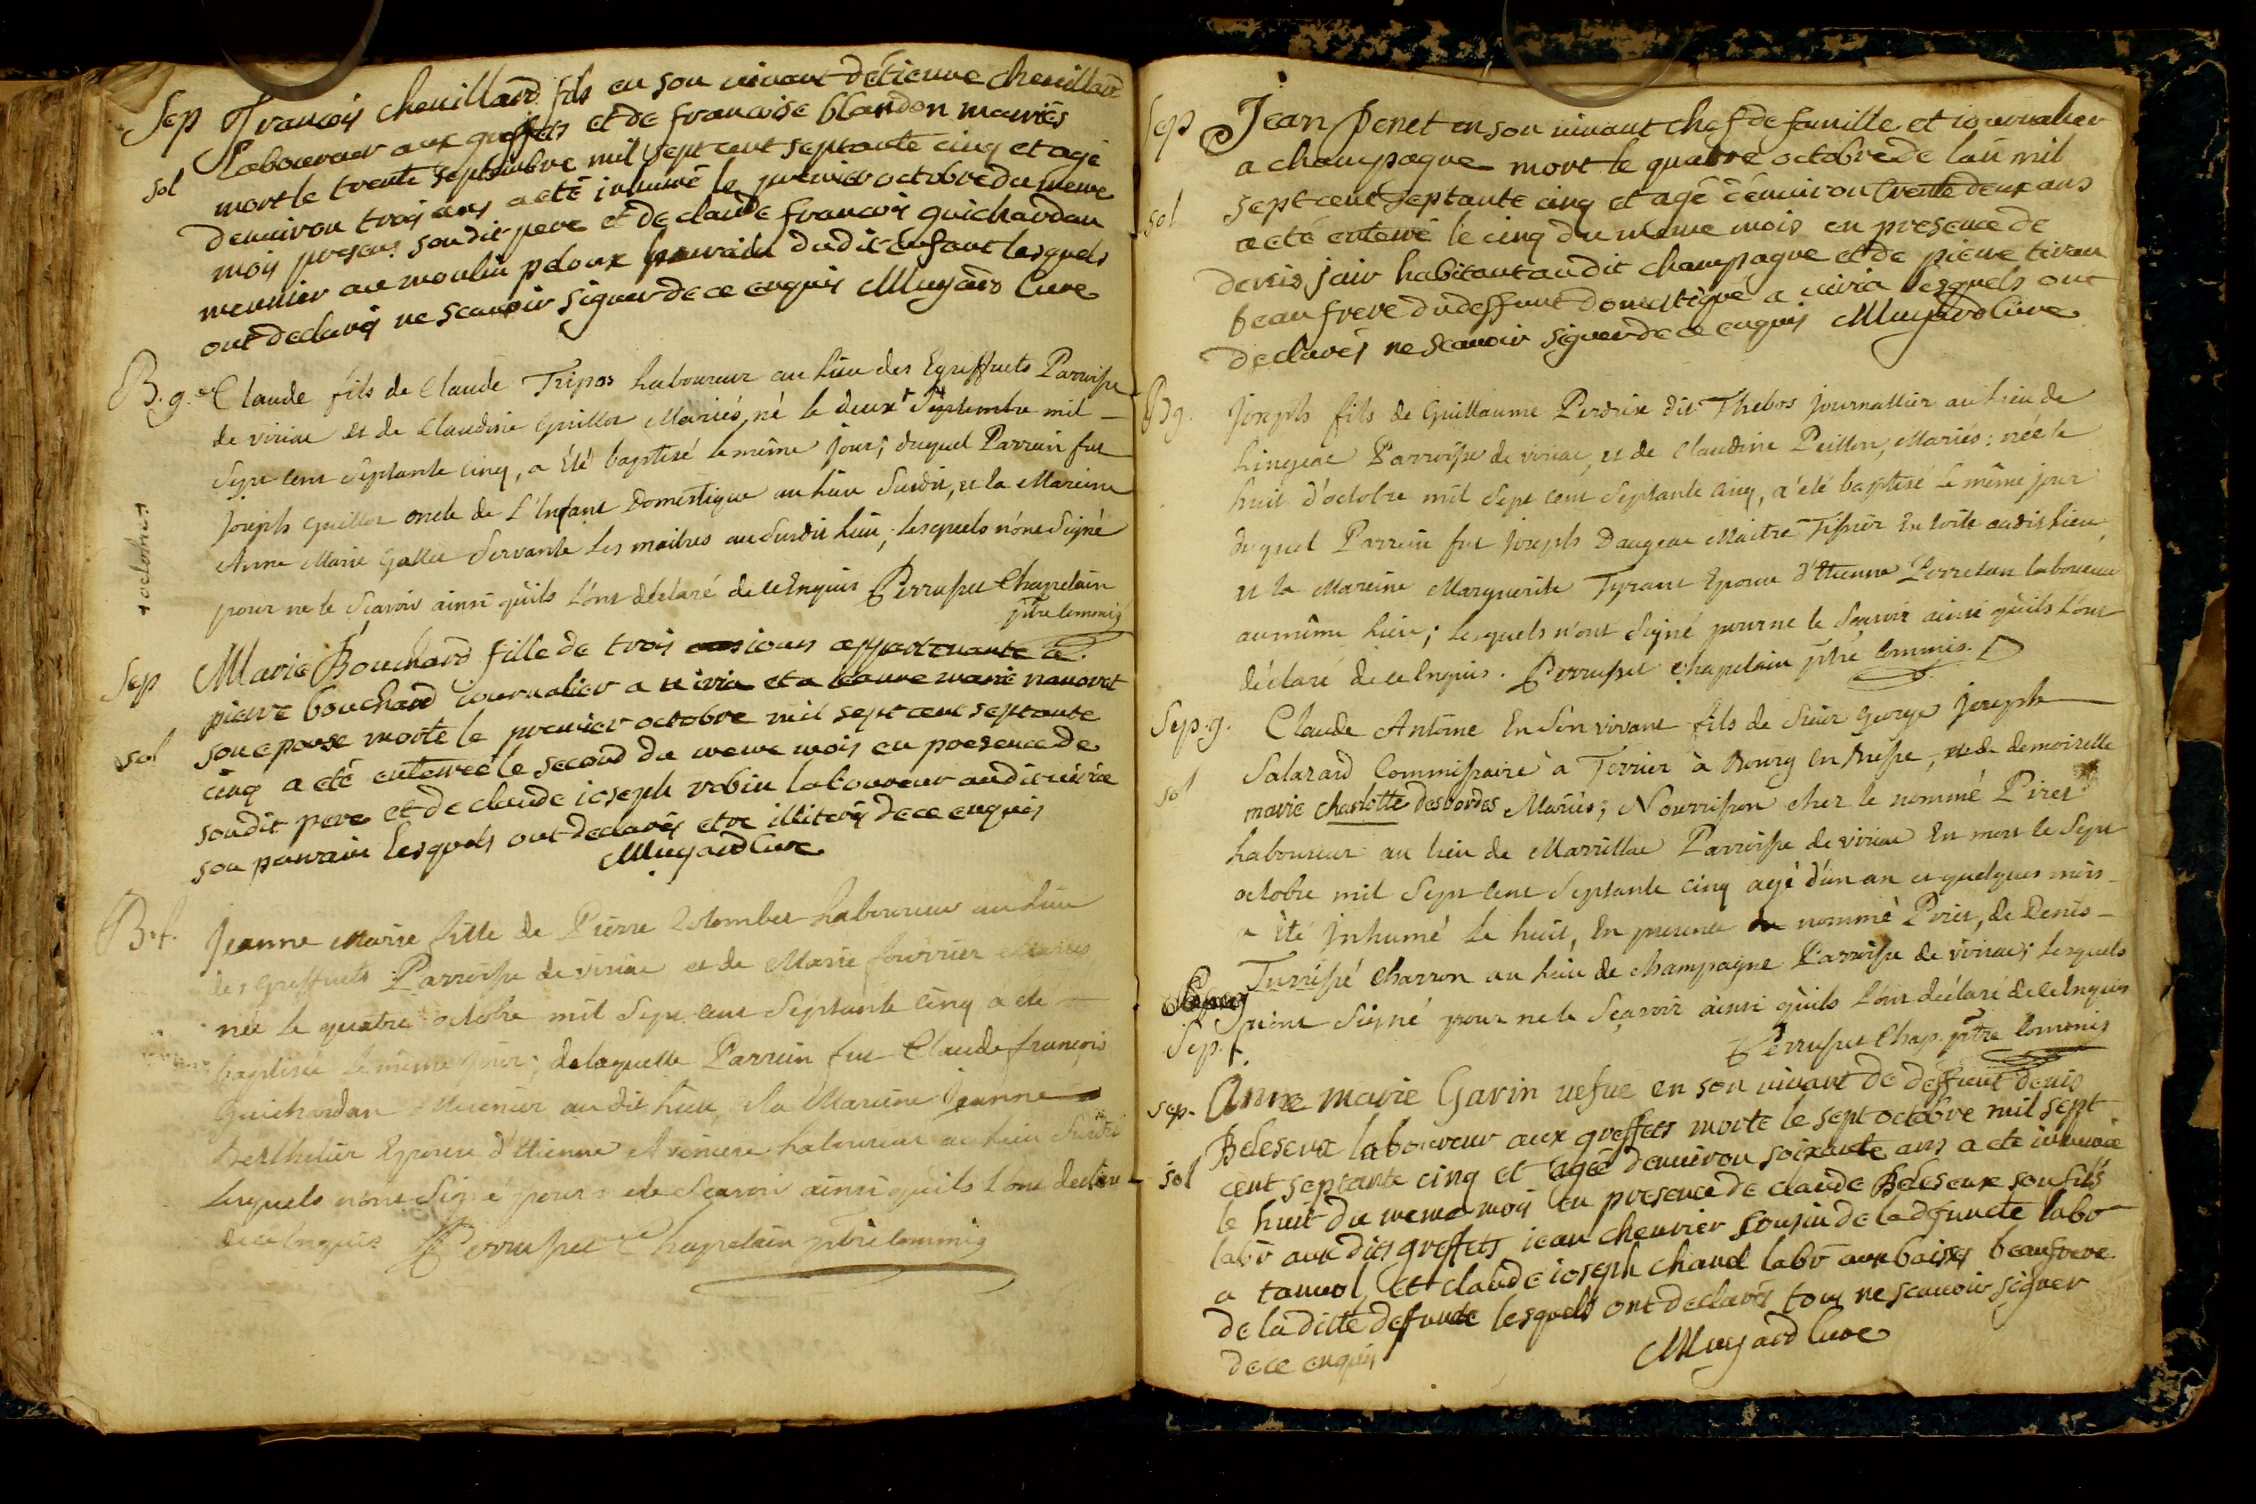 Sep françois cheuillard fils en son uiuant détienne cheuillard
laboureur aux greffets et de francoise blandon mariés
sol mort le trente septembre mil sept cent septante cinq et agé
denuiron trois ans a eté inhumé le premier octobre du meme
mois presens soudit pere et de claude francois guichardan
meunier au moulin peloux parrain dudit enfant lesquels
ont declarés ne scauoir signer de ce enquis Muyard Curé
B.g. Claude fils de Claude Tripos Laboureur au Lieu des Egreffiets Parroisse
de viriac et de Claudine Guillot Mariés, né le deux Septembre mil
Sept Cent Septante Cinq, a Été baptisé le même jour; duquel Parrain fut
Joseph Guillot oncle de L'Enfant Domestique au Lieu Susdit, et la Mareine
Anne Marie Gallet Servante Les maitres au Susdit Lieu; Lesquels n'ont Signé
pour ne le Sçavoir ainsi qu'ils L'ont déclaré de ce Enquis Perruset Chapelain
ptre Commis
octobres
Sep Marie Bouchard fille de trois iours appartenante a
pierre bouchard iournalier a uiria et a
son epouse morte le premier octobre mil sept cent septante
sol cinq a eté enterreé le second du meme mois en presence de
soudit pere et de claude ioseph robin laboureur audit uiria
son parrain lesquels ont declarés etre illiterés de ce enquis
Muyard Curé
B.f. Jeanne Marie fille de Pierre Laboureur au Lieu
des Greffiets Parroisse de viriac et de Marie fourrier Mariés
née le quatre octobre mil Sept Cent Septante Cinq a eté
baptisée le même jour; de laquelle Parrain fut Claude françois
Guichardan Meunier audit Lieu, la Mareine Jeanne
Berthelier Epouse d'Etienne Laboureur au Lieu Susdit
Lesquels n'ont Signé pour ne le Scavoir ainsi qu'ils L'ont declaré
de ce Enquis Perruset Chapelain ptre Commis
Sep Jean Penet en son uiuant chef de famille et iournalier
a champagne mort le quatre octobre de lan mil
sol sept cent septante cinq et agé d'enuiron trente deux ans
a eté enterré le cinq du meme mois en presence de
denis jair habitant audit champagne et de pierre tiran
beaufrere du deffunt domestique a uiria lesquels ont
declarés ne scauoir signer de ce enquis Muyard Curé
Bg. Joseph fils de Guillaume Perdrix dit Thebos journallier au Lieu de
Lingeat Parroisse de viriac, et de Claudine Peillon, Mariés; née le
huit d'octobre mil Sept Cent Septante Cinq, a été baptisé le même jour
duquel Parrein fut Joseph Daugeac Maître Tissier En toile audit Lieu
et la Mareine Marguerite Tyrant Epouse d'Etienne Perretan laboureur
au même Lieu; Lesquels n'ont Signé pour ne le Sçavoir ainsi qu'ils L'ont
déclaré de ce Enquis. Perruset Chapelain ptre Commis.
Sep.g. Claude Antoine En Son vivant fils de Sieur George Joseph
sol Salazard Commissaire à Terrier à Bourg En Bresse, et de demoiselle
marie charlotte desbordes Mariés; Nourrisson chez le nommé Piret
Laboureur au Lieu de Marrillac Parroisse de viriac En mort le Sept
octobre mil Sept Cent Septante Cinq agé d'un an et quelques mois
a été Inhumé le huit, En presence du nommé Piret, de Denis
Turrissé Charron au Lieu de Champagne Parroisse de viriac; lesquels
n'ont Signé pour ne le Sçavoir ainsi qu'ils L'ont déclaré de ce Enquis
Sep.f. Perruset Chap. ptre Commis
sep. Anne marie Gavin uefue en son uiuant de deffunt denis
Beleseux laboureur aux greffets morte le sept octobre mil sept
sol cent septante cinq et agée denuiron soixante ans a eté inhumée
le huit du meme mois en presence de claude Beleseux son fils
labr aux dits greffets iean cheurier cousin de la defuncte labr
a tanuol et claude ioseph chanel labr aux baises beaufrere
de la ditte defuncte lesquels ont declarés tous ne scauoir signer
de ce enquis Muyard Curé